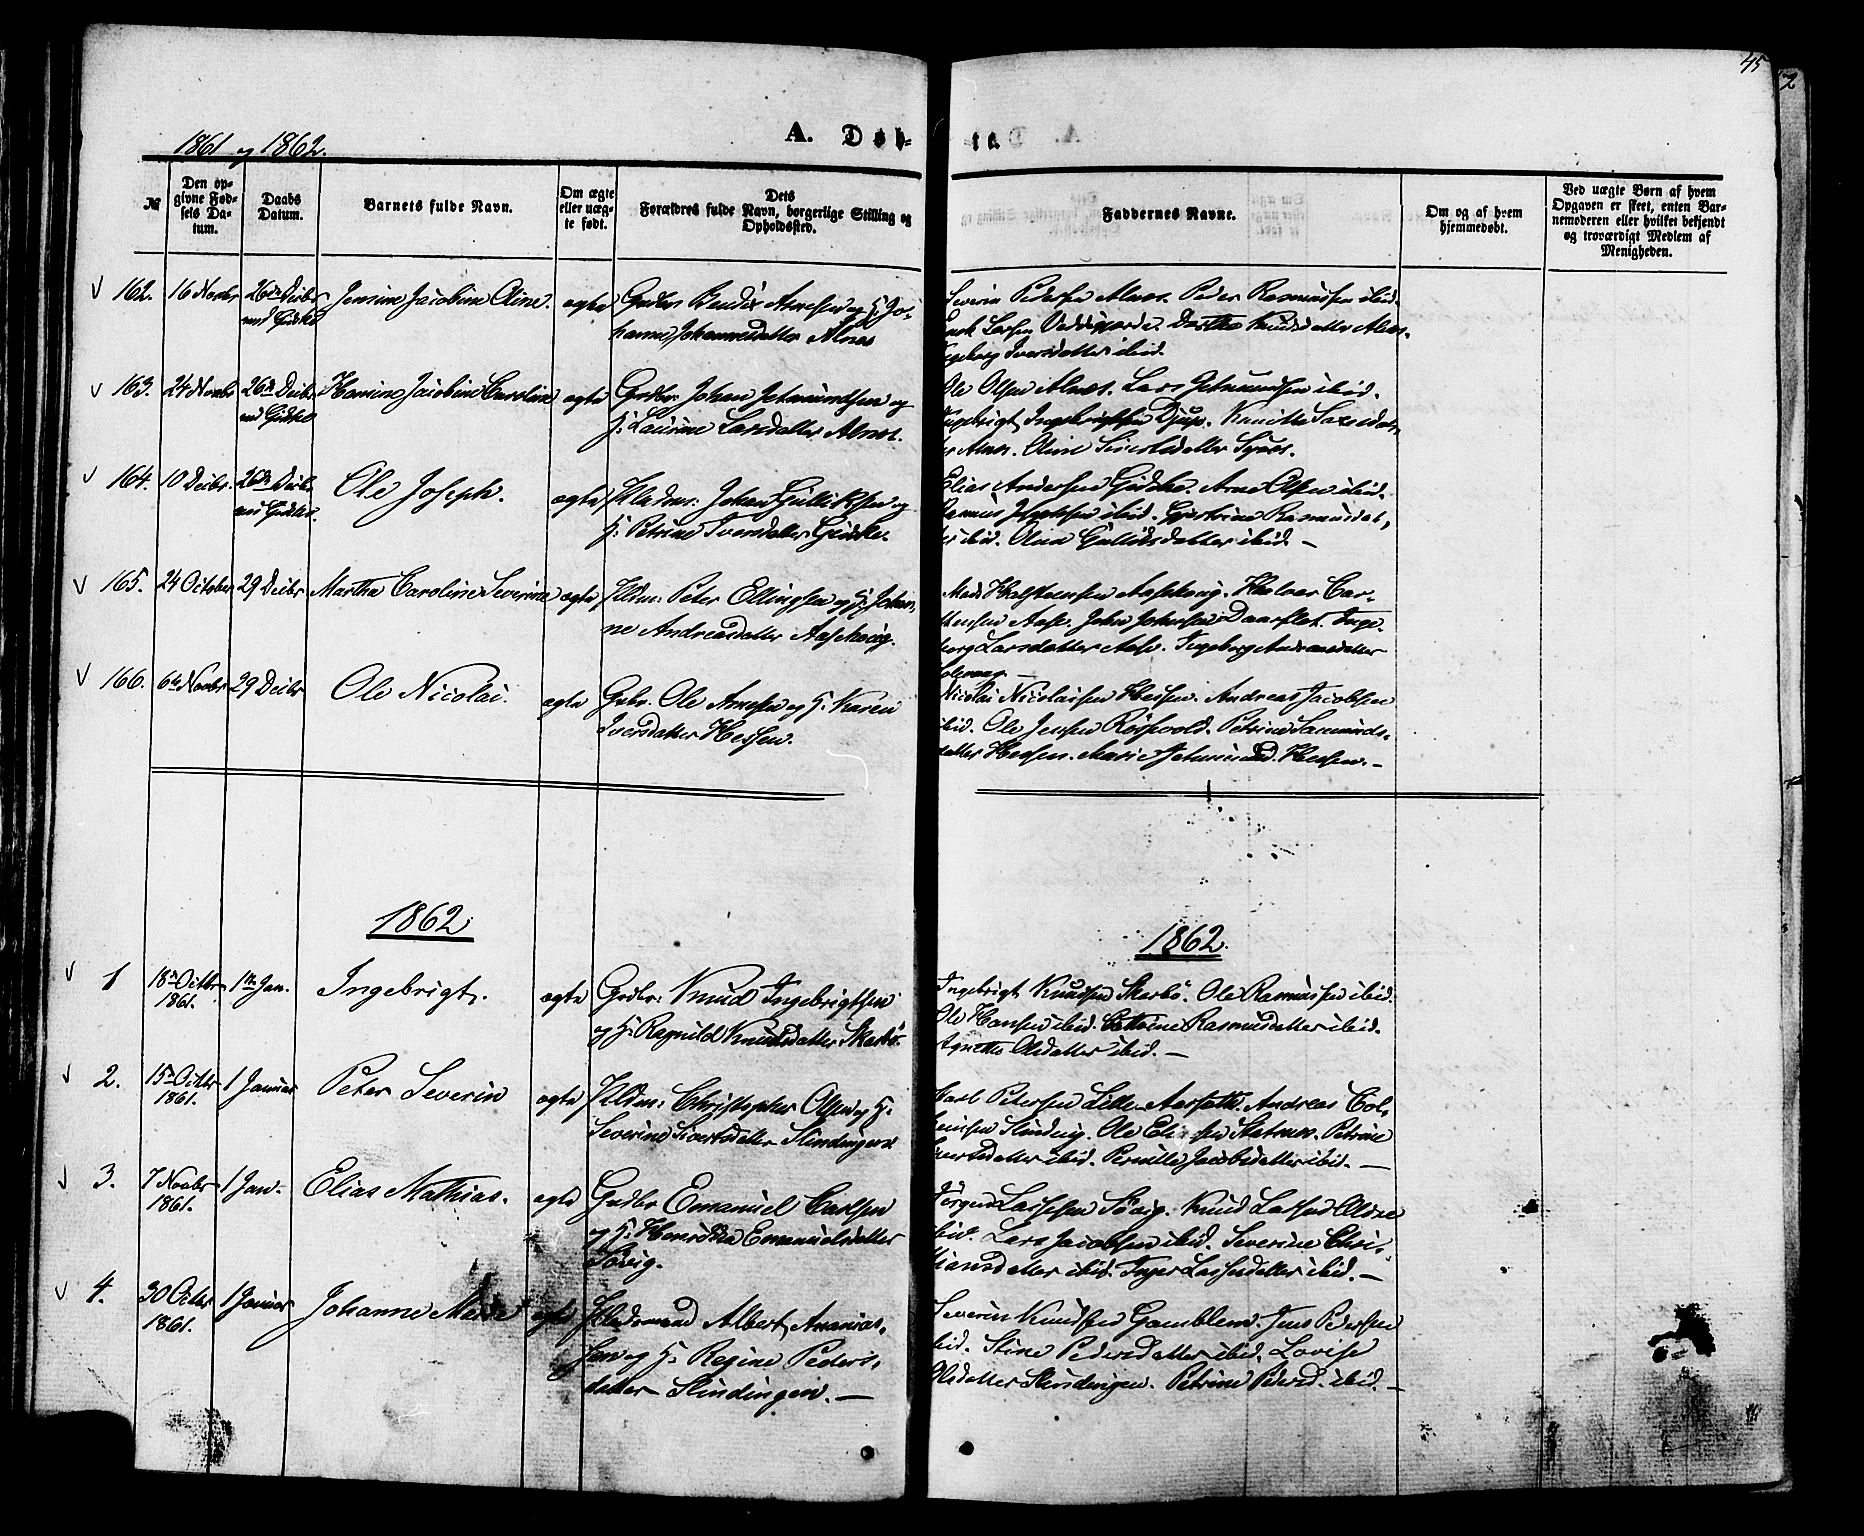 45
2
1861 og 1862.
A. Døb-
te.
№
Den op-
givne Fød-
sels Da-
tum.
Daabs
Datum.
Barnets fulde Navn.
Om ægte
eller uæg-
te født.
Dets
Forældres fulde Navn, borgerlige Stilling og
Opholdssted.
Faddernes Navne.
Om og af hvem
hjemmedøbt.
Ved uægte Børn af hvem
Opgaven er skeet, enten Bar-
nemoderen eller hvilket bekjendt
og troværdigt Medlem af
Menigheden.
162. 16 Novbr 26de Decbr Jensine Jacobine Oline. ægte Grdbr. Bendix Arnesen og H. Jo-
ved Gidske hanne Johannesdatter Alnes
Severin Pedersen Alnes. Peder Rasmussen ibid.
Larsen Dorthe Knudsdatter Alnes.
Ingeborg Iversdatter ibid.
163. 24 Novbr 26de Decbr Hansine Jacobine Caroline ægte Grdbr. Johan Jetmundsen og
ved Gidske H. Laurine Larsdatter Alnes.
Ole Olsen Alnes. Lars Jetmundsen ibid.
Ingebrigt Ingebrigtsen Djup.
Alnes. Oline
164. 10 Decbr. 26de Decbr. Ole Joseph. ægte Pladsm. Johan Gulliksen og
ved Gidske. H. Petrine Iversdatter Gidske.
Elias Andersen Gidske. Arne Olsen ibid.
Rasmus Josephsen ibid. Rasmusdat-
ter ibid. Oline Gulliksdatter ibid. —
165. 24 October 29 Decbr Martha Caroline Severine ægte Pldm. Peter Ellingsen og H. Johan-
ne Andreasdatter
Mads Halvor Car-
Inge-
borg Larsdatter Ingeborg Andreasdatter
166. 6te Novbr 29 Decbr Ole Nicolai. ægte Gbr. Ole Arnesen og H. Karen
Iversdatter Hessen.
Nicolai Nicolaisen Hessen. Andreas Jacobsen
ibid. Ole Jensen Petrine Samunds-
datter Hessen. Marie Jetmundsd. Hessen. —
1862
1862.
1 18de Octbr 1ste Jan. Ingebrigt. ægte Grdbr. Knud Ingebrigtsen
1861. og H. Ragnild Knudsdatter Skarbö.
Ingebrigt Knudsen Skarbö. Ole Rasmussen ibid.
Ole Hansen ibid. Cathrine Rasmusdatter ibid.
Agnethe Olsdatter ibid. —
2. 15de Octbr 1 Januar Peter Severin ægte Pldm. Christopher Olsen og H.
1861. Severine Sivertsdatter Slindingen
Carl Petersen Lille Aarseth. Andreas Col-
Ole Petrine
ibid. Pernille Jacobsdatter ibid. —
3. 7 Novbr 1 Jan. Elias Mathias. ægte Grdbr Emanuel Carlsen
1861. og H. Henrikka Emanuelsdatter
Sövig.
Jörgen Lassesen Sövig. Knud Lassesen
ibid. Lars Jacobsen ibid. Severine Chri-
stiansdatter ibid. Inger Lassesdatter ibid. —
4. 30 Octbr 1 Januar Johanne Marie ægte Pladsmand Albert Ananias-
1861. sen og H. Regine Peders-
datter Slindingen. —
Severin Knudsen Gamblem. Jens Pedersen
ibid. Stine Pedersdatter ibid. Lovise
Olsdatter Slindingen. Petrine Pedersd. ibid. —